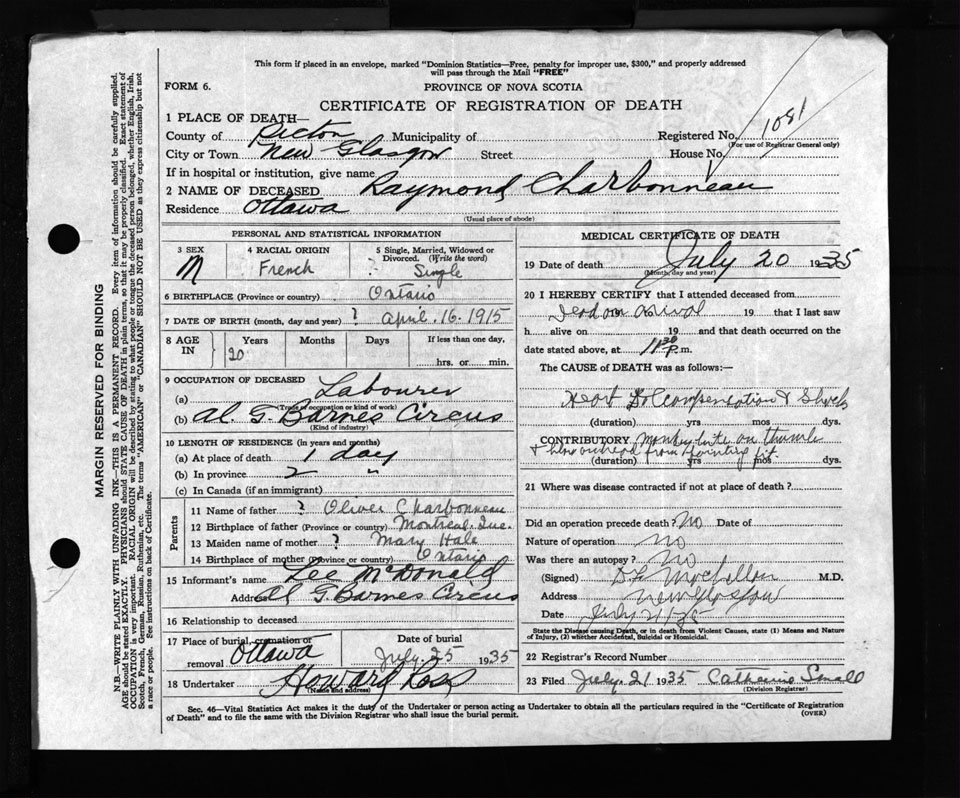 This form if placed in an envelope, marked "Dominion Statistics—Free, penalty for improper use, $300," and properly addressed
will pass through the Mail "FREE"
FORM 6.
PROVINCE OF NOVA SCOTIA
CERTIFICATE OF REGISTRATION OF DEATH
1 PLACE OF DEATH—
County of Pictou Municipality of Registered No. 1081
(For use of Registrar General only)
City or Town New Glasgow Street House No.
If in hospital or institution, give name
2 NAME OF DECEASED Raymond Charbonneau
Residence Ottawa
(Usual place of abode)
PERSONAL AND STATISTICAL INFORMATION
3 SEX 4 RACIAL ORIGIN 5 Single, Married, Widowed or
Divorced. (Write the word)
M French ? Single
6 BIRTHPLACE (Province or country) Ontario
7 DATE OF BIRTH (month, day and year) ? April 16 1915
8 AGE IN Years Months Days If less than one day,
20 hrs. or min.
9 OCCUPATION OF DECEASED
(a) Labourer
(Trade, occupation or kind of work)
(b) Al. G. Barnes Circus
(Kind of industry)
10 LENGTH OF RESIDENCE (in years and months)
(a) At place of death 1 day
(b) In province 2 "
(c) In Canada (if an immigrant)
Parents
11 Name of father ? Oliver Charbonneau
12 Birthplace of father (Province or country) Montreal Que.
13 Maiden name of mother ? Mary Hale
14 Birthplace of mother (Province or country) Ontario
15 Informant's name Leo McDonald
Address Al G. Barnes Circus
16 Relationship to deceased
17 Place of burial, cremation or Date of burial
removal Ottawa July 25 1935
18 Undertaker Howard Ross
(Name and address)
MEDICAL CERTIFICATE OF DEATH
19 Date of death July 20 1935
(Month, day and year)
20 I HEREBY CERTIFY that I attended deceased from
Dead on arrival 19 that I last saw
h alive on 19 and that death occurred on the
date stated above, at 11 30 P.m.
The CAUSE of DEATH was as follows:—
Heart Decompensation & Shock
(duration) yrs mos dys.
CONTRIBUTORY monkey bite on thumb
& blow on head from fainting fit.
(duration) yrs mos dys.
21 Where was disease contracted if not at place of death?
Did an operation precede death? No Date of
Nature of operation No
Was there an autopsy? No
(Signed) M.D.
Address New Glasgow
Date July 21/35
State the Disease causing Death, or in death from Violent Causes, state (1) Means and Nature
of Injury, (2) whether Accidental, Suicidal or Homicidal.
22 Registrar's Record Number
23 Filed July 21 1935 Catherine Small
(Division Registrar)
Sec. 46—Vital Statistics Act makes it the duty of the Undertaker or person acting as Undertaker to obtain all the particulars required in the "Certificate of Registration
of Death" and to file the same with the Division Registrar who shall issue the burial permit.
(OVER)
MARGIN RESERVED FOR BINDING
N.B.—WRITE PLAINLY WITH UNFADING INK—THIS IS A PERMANENT RECORD. Every item of information should be carefully supplied.
AGE should be stated EXACTLY. PHYSICIANS should STATE CAUSE OF DEATH in plain terms, so that it may be properly classified. Exact statement of
OCCUPATION is very important. RACIAL ORIGIN will be described by stating to what people or tongue the deceased person belonged, whether English, Irish,
Scotch, French, German, Russian, Ruthenian, etc. The terms "AMERICAN" or "CANADIAN" SHOULD NOT BE USED as they express citizenship but not
a race or people. See instructions on back of Certificate.